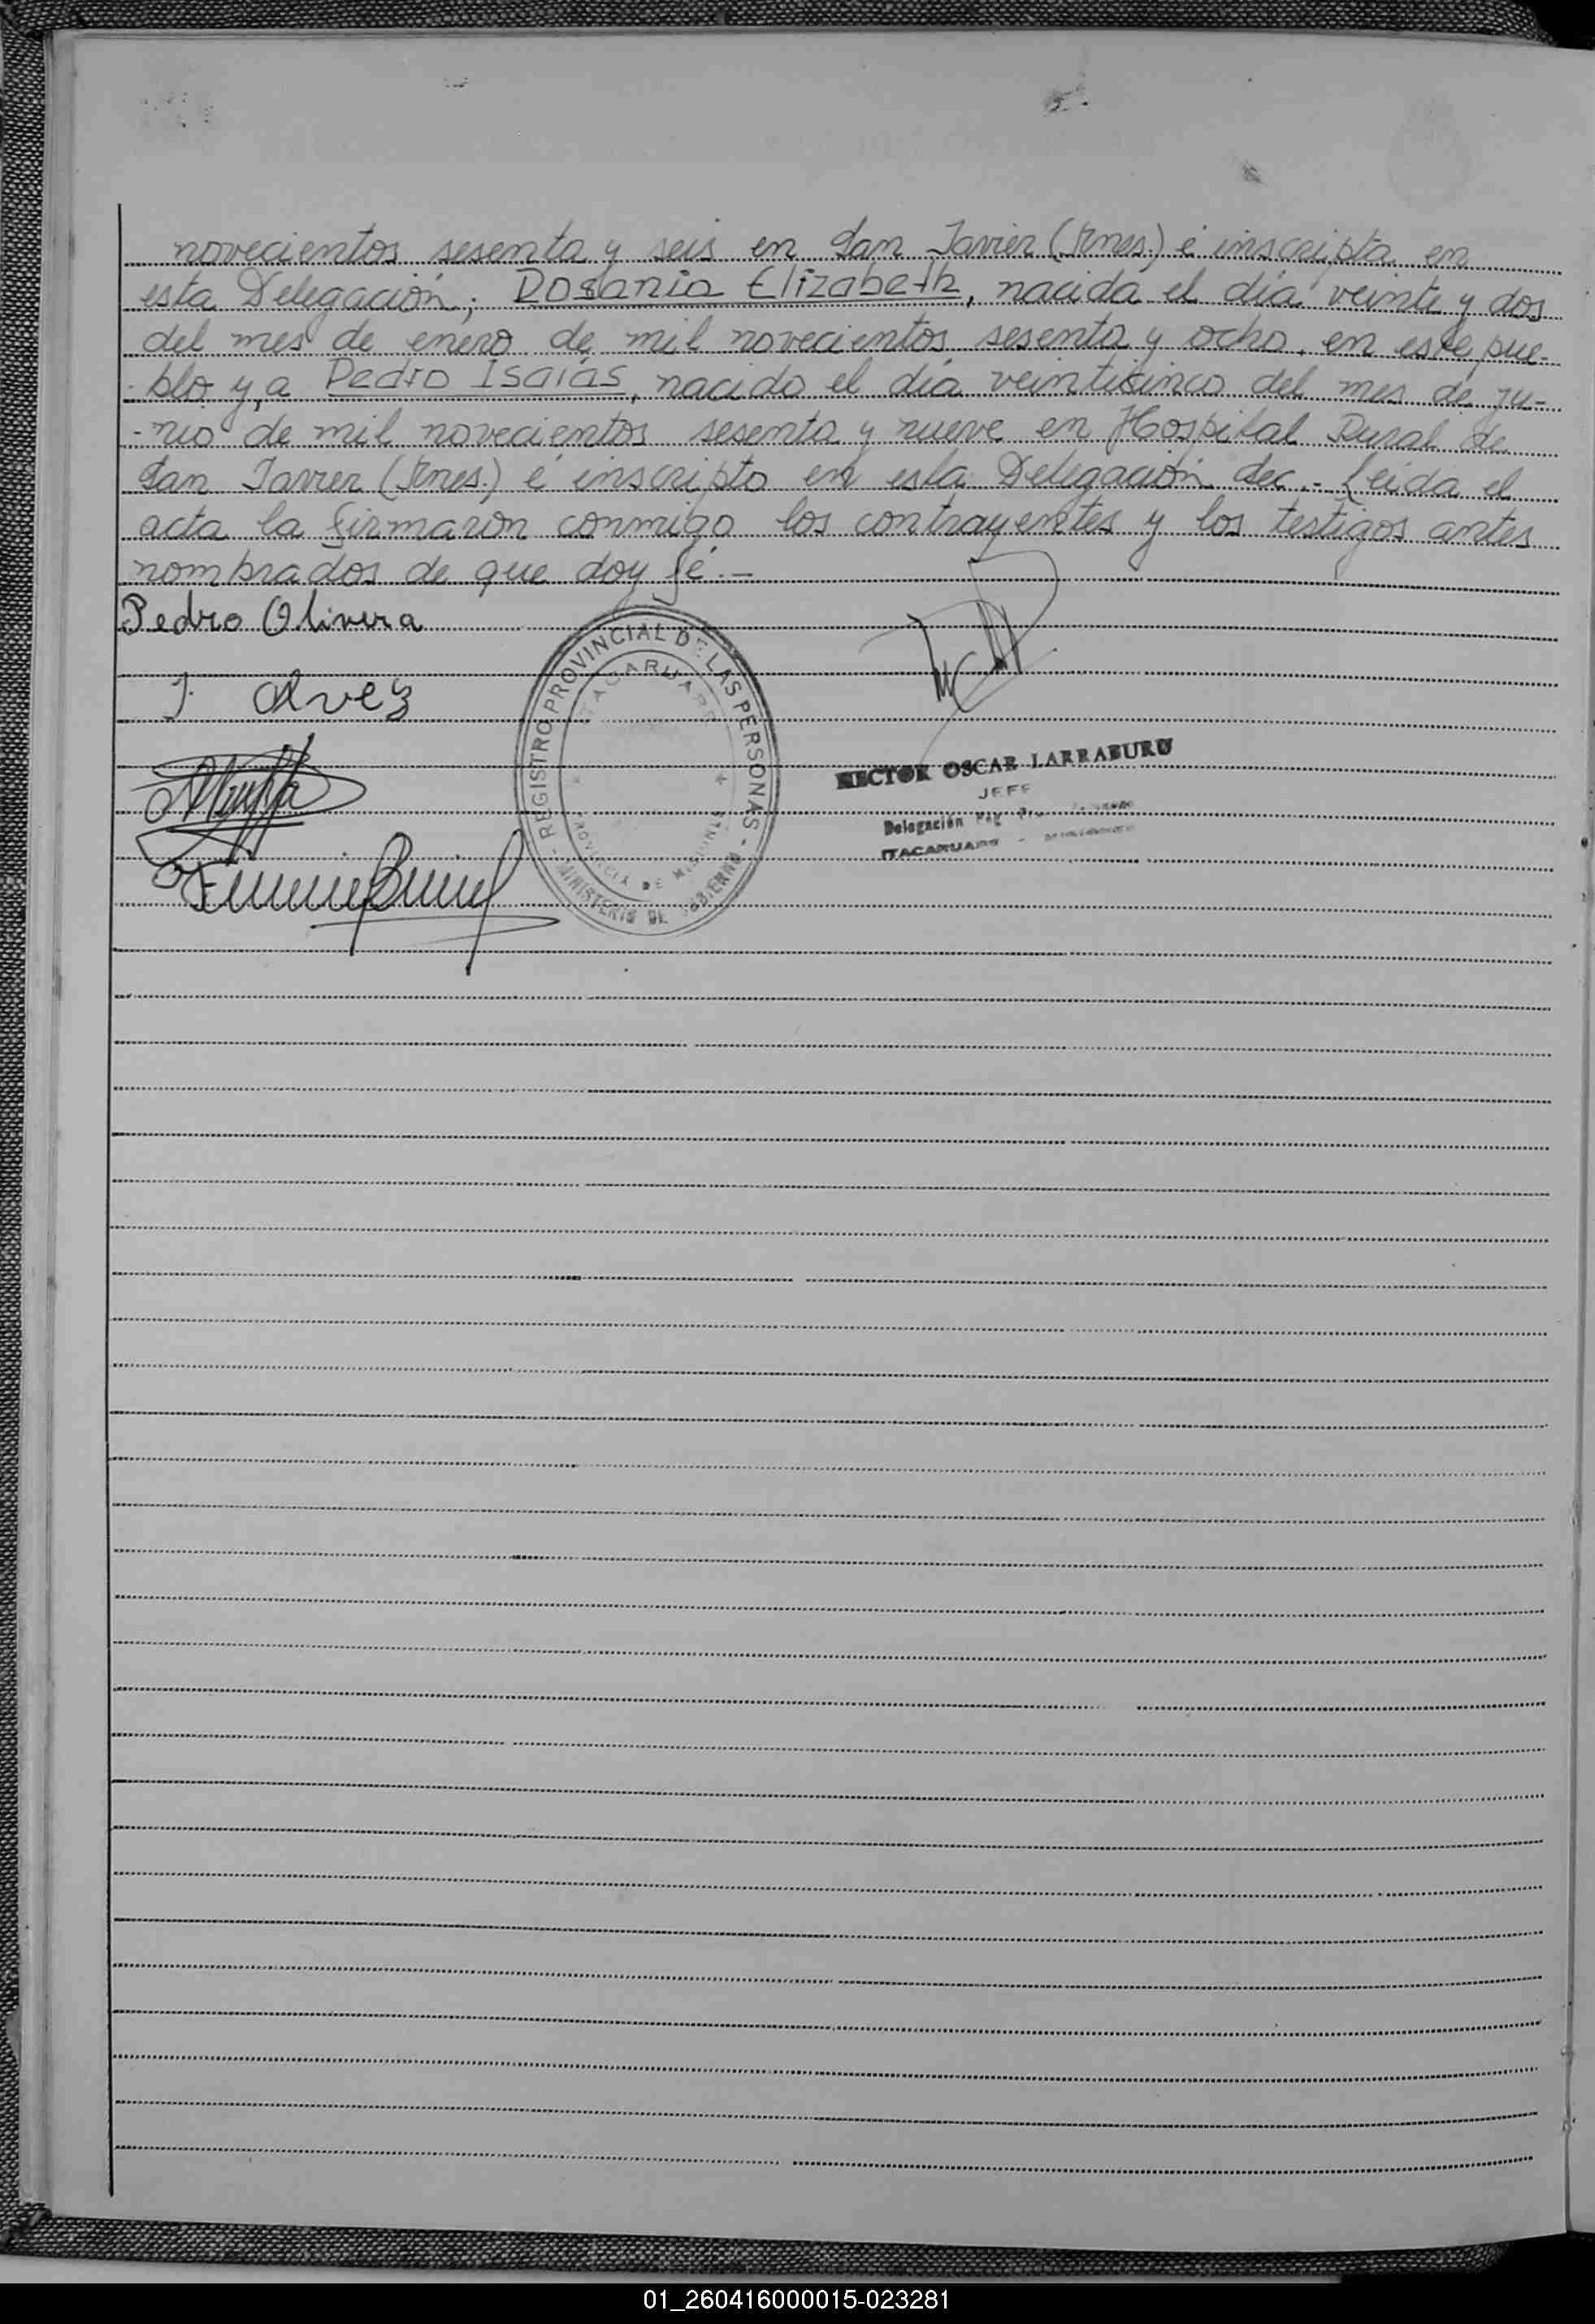 novecientos sesenta y seis en San Javier (Mnes.) é inscripta en
esta Delegación; Rosania Elizabeth, nacida el día veinte y dos
del mes de enero de mil novecientos sesenta y ocho, en este pue-
-blo y, a Pedro Isaías, nacido el día veinticinco del mes de ju-
-nio de mil novecientos sesenta y nueve en Hospital Rural de
San Javier (Mnes.) é inscripto en esta Delegación sec.- Leida el
acta la firmaron conmigo los contrayentes y los testigos antes
nombrados de que doy fé.-
Pedro Olivera
J. Alvez
- REGISTRO PROVINCIAL DE LAS PERSONAS -
ITACARUARE
PROVINCIA DE MISIONES
MINISTERIO DE GOBIERNO
HECTOR OSCAR LARRABURU
JEFE
Delegación
ITACARUARE -
01_260416000015-023281